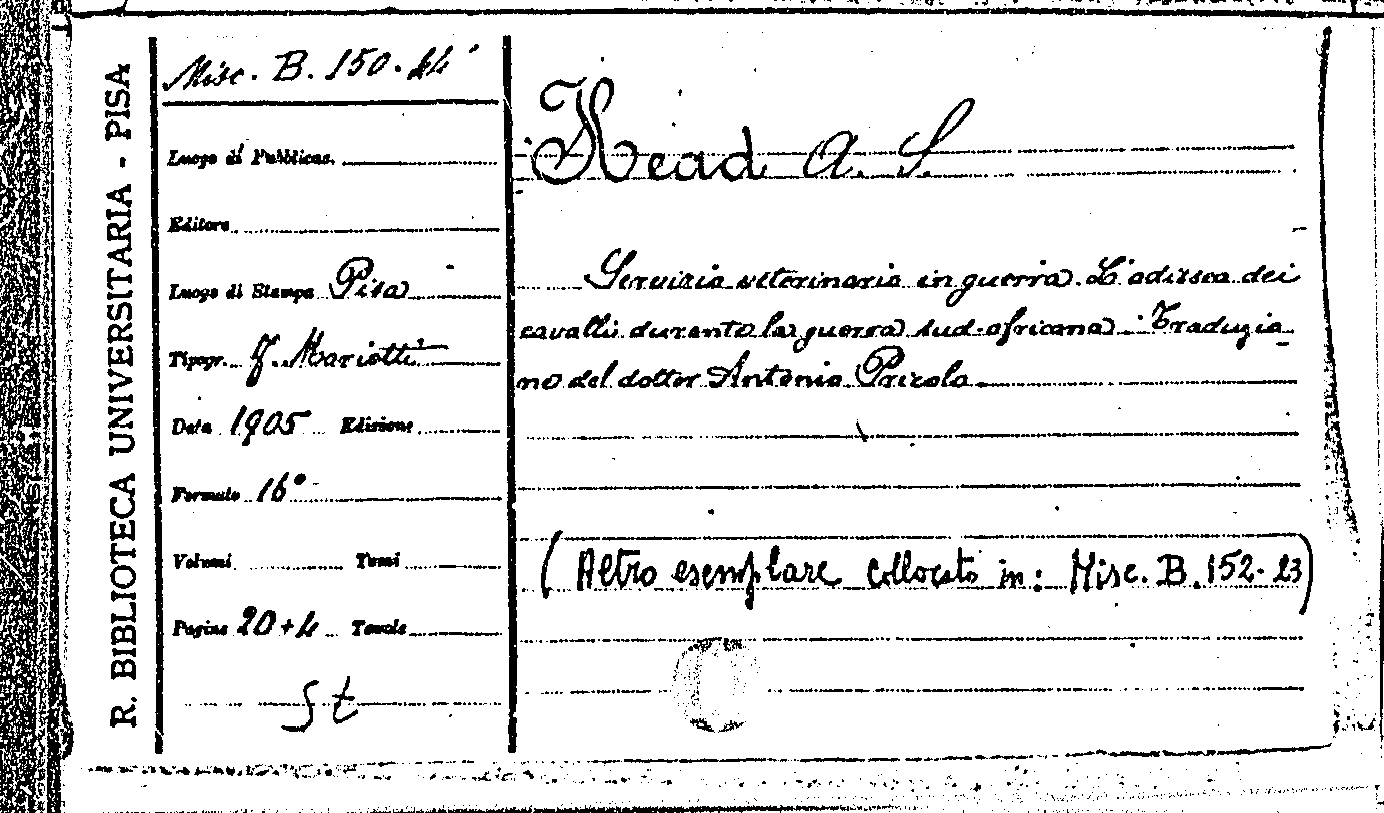 R. BIBLIOTECA UNIVERSITARIA - PISA
Misc. B. 150. 44
Luogo di Pubblicaz.
Editore
Luogo di Stampa Pisa
Tipogr. F. Mariotti
Data 1905 Edizione
Formato 16°
Volumi Tomi
Pagine 20+4 Tavole
St
Head A. S.
Servizio veterinario in guerra. L'odissea dei
cavalli durante la guerra sud-africana. Traduzio-
ne del dottor Antonio
(Altro esemplare collocato in: Misc. B. 152. 23)